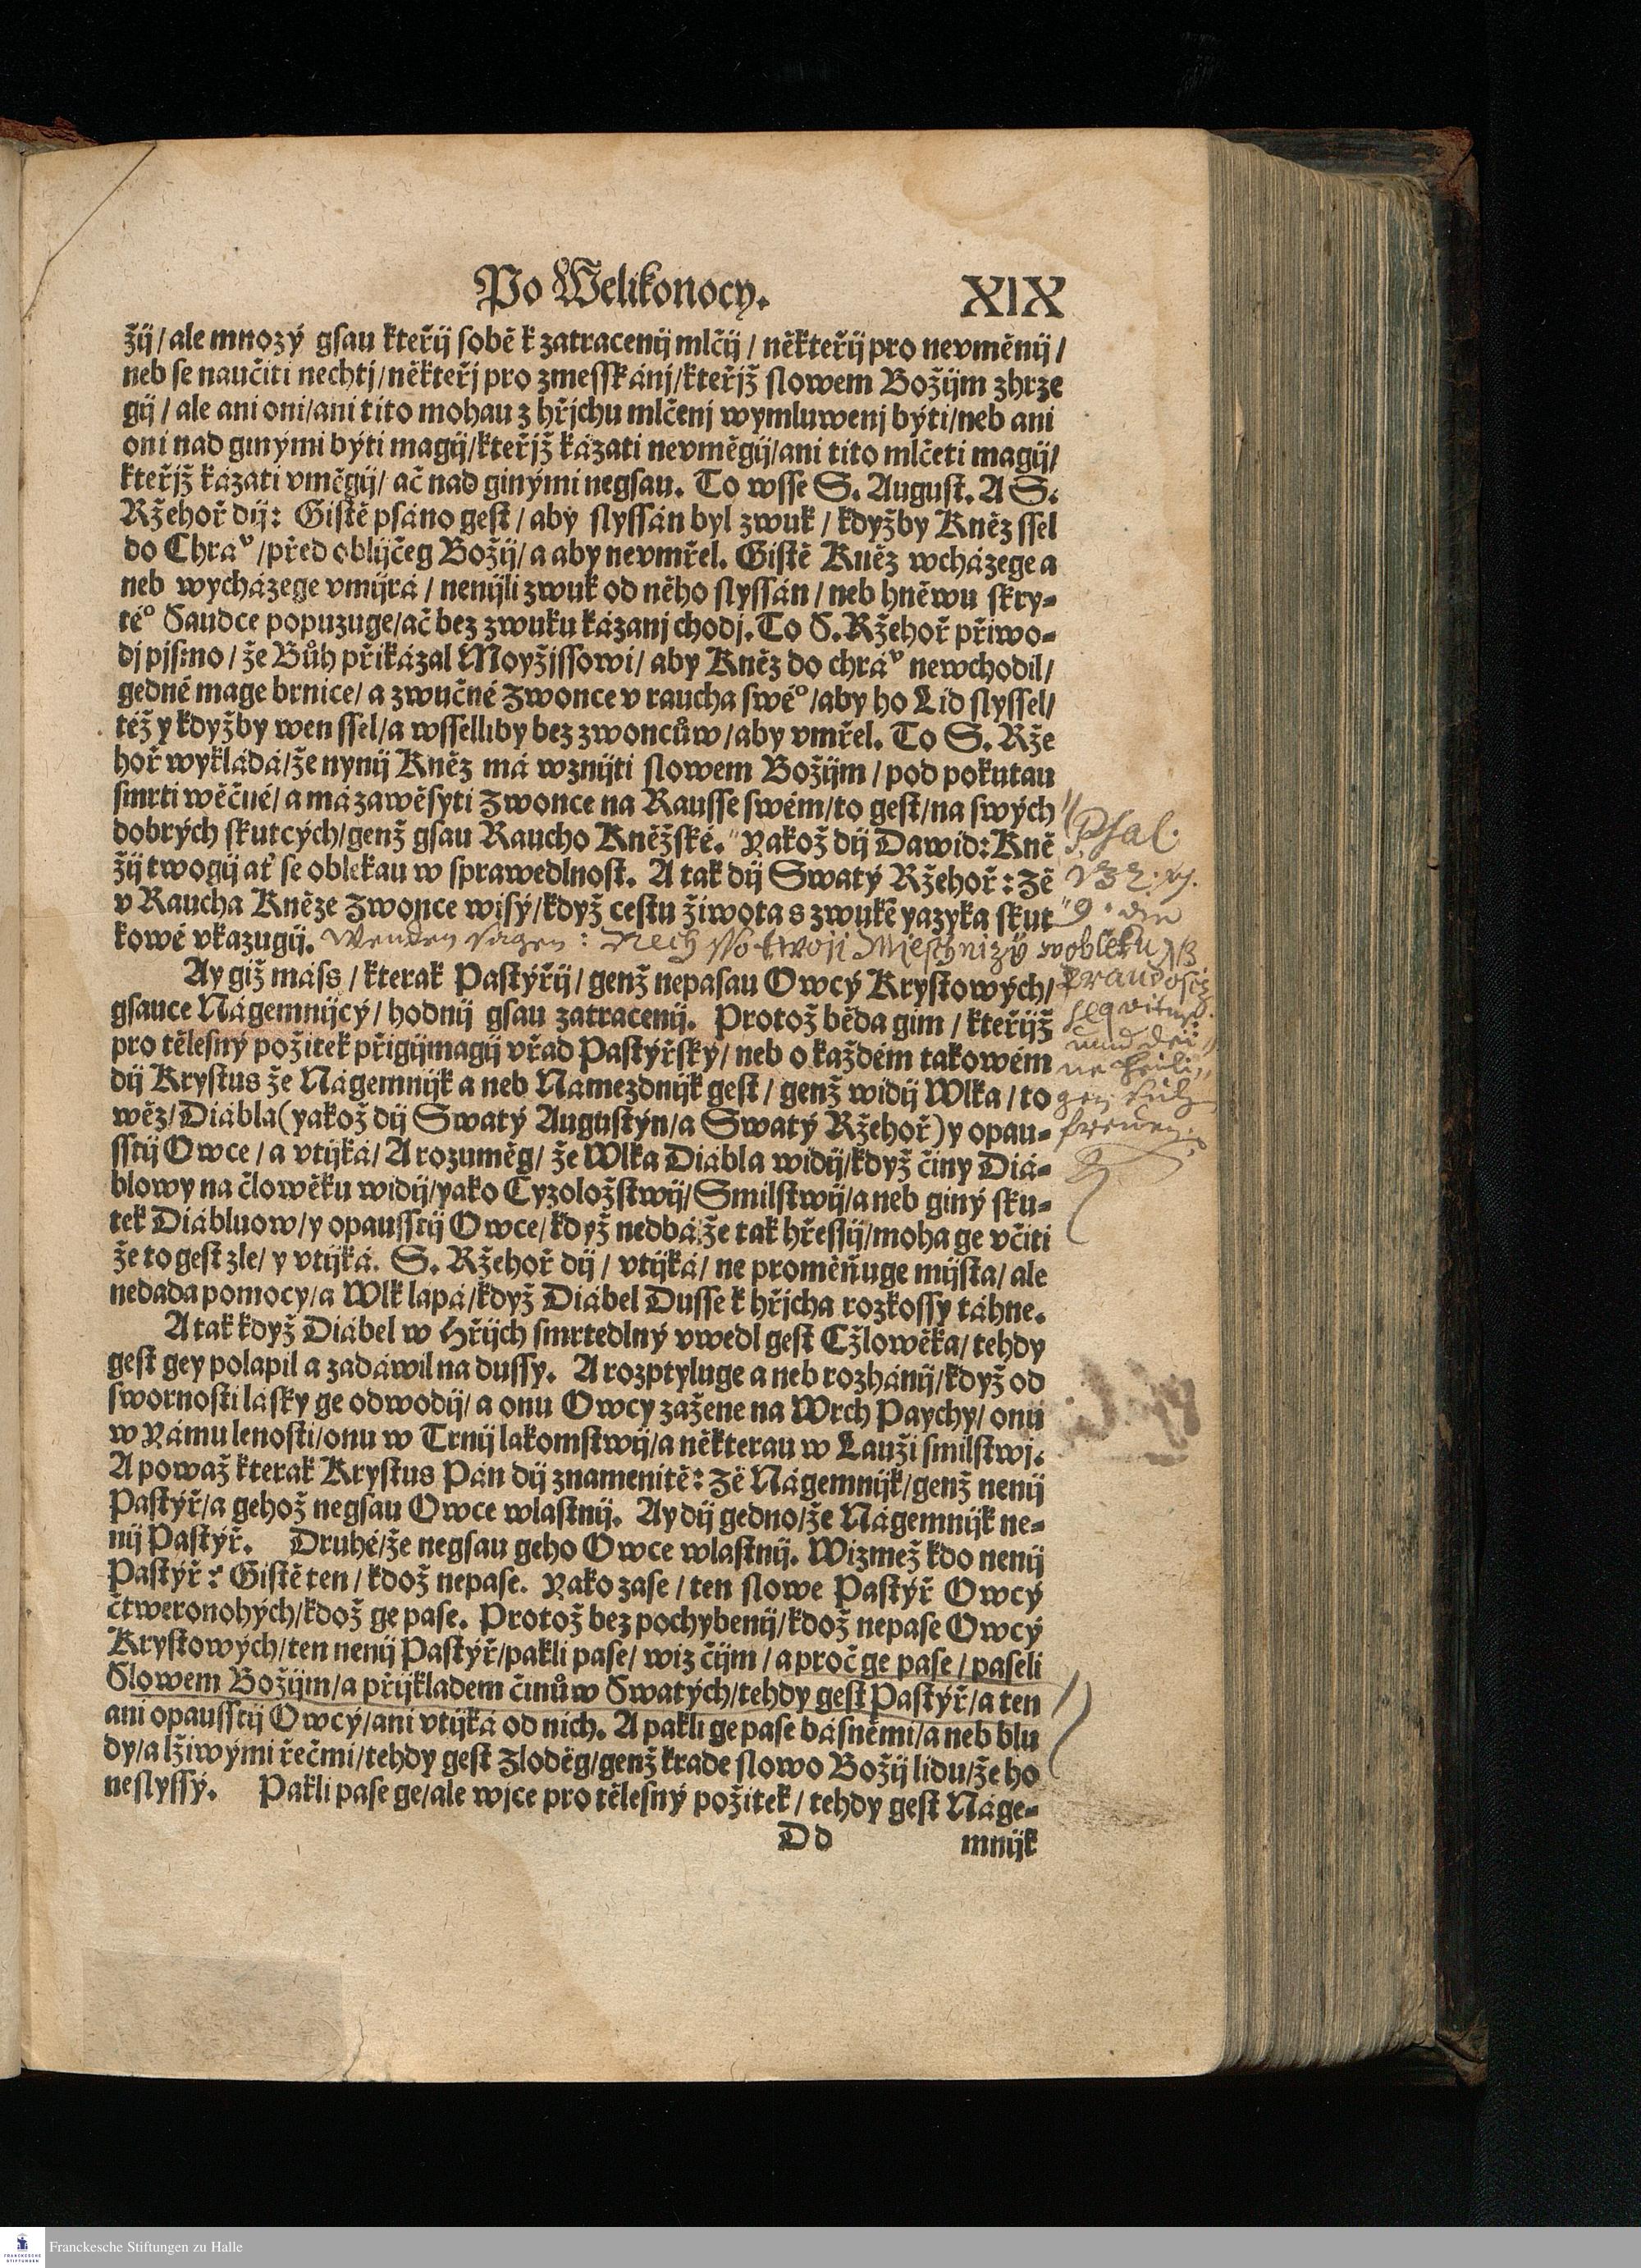 Po Welikonocy. XIX
žij/ ale mnozý gsau kteřij sobě k zatracenij mlčij / někteřij pro nevměnij /
neb se naučiti nechtj/ někteřj pro zmesskánj/ kteřjž slowem Božijm zhrze
gij / ale ani oni/ ani tito mohau z hřjchu mlčenj wymluwenj býti/ neb ani
oni nad ginými býti magij/ kteřjž kázati nevměgij/ ani tito mlčeti magij/
kteřjž kázati vměgij/ ač nad ginými negsau. To wsse S. August. A S.
Ržehoř dij: Gistě psáno gest / aby slyssán byl zwuk / kdyžby Kněz ssel
do Chraᵛ /před oblijčeg Božij/ a aby nevmřel. Gistě Kněz wcházege a
neb wycházege vmijrá / nenijli zwuk od něho slyssán / neb hněwu skry-
té° Saudce popuzuge/ ač bez zwuku kázanj chodj. To S. Ržehoř přiwo-
dj pjsmo / že Bůh přikázal Moyžjssowi/ aby Kněz do chráᵛ newchodil/
gedné mage brnice/ a zwučné Zwonce v raucha swé° /aby ho Lid slyssel/
též y kdyžby wen ssel/ a wsselliby bez zwoncůw/ aby vmřel. To S. Rže
hoř wykládá/ že nynij Kněz má wznijti slowem Božijm / pod pokutau
smrti wěčné/ a má zawěsyti Zwonce na Rausse swém/ to gest/ na swých
dobrých skutcých/ genž gsau Raucho Kněžské. " Yakož dij Dawid: Kně
žij twogij ať se oblekau w sprawedlnost. A tak dij Swatý Ržehoř: Zě
v Raucha Kněze Zwonce wisý/ když cestu žiwota s zwukē yazyka skut
kowé vkazugij. Wenden sagen: Nech sso twoji Mjeschnizy wobleku
Psal.
132. v.
9. die
Ay giž máss / kterak Pastýřij / genž nepasau Owcý Krystowých/
gsauce Nágemnijcý / hodnij gsau zatracenij. Protož běda gim / kteřijž
pro tělesný požitek přigijmagij vřad Pastýřský/ neb o každém takowém
dij Krystus že Nágemnijk a neb Námezdnijk gest / genž widij Wlka / to
wěz/ Diábla (yakož dij Swatý Augustýn/ a Swatý Ržehoř) y opau-
sstij Owce / a vtijká/ A rozuměg/ že Wlka Diábla widij/ když činy Diá-
blowy na člowěku widij/ yako Cyzoložstwij/ Smilstwij/ a neb giný sku-
tek Diábluow/ y opausstij Owce/ když nedbá/ že tak hřessij/ moha ge včiti
že to gest zle/ y vtijká. S. Ržehoř dij / vtijká/ ne proměňuge mijsta/ ale
nedada pomocy/ a Wlk lapá/ když Diábel Dusse k hřjcha rozkossy táhne.
A tak když Diábel w Hřijch smrtedlný vwedl gest Cžlowěka/ tehdy
gest gey polapil a zadáwil na dussy. A rozptyluge a neb rozhánij/ když od
swornosti lásky ge odwodij/ a onu Owcy zažene na Wrch Paychy/ onu
w Yámu lenosti/ onu w Trnij lakomstwij/ a některau w Lauži smilstwj.
A powaž kterak Krystus Pán dij znamenitě: Zě Nágemnijk/ genž nenij
Pastýř/ a gehož negsau Owce wlastnij. Ay dij gedno/ že Nágemnijk ne-
nij Pastýř. Druhé/ že negsau geho Owce wlastnij. Wizmež kdo nenij
Pastýř: Gistě ten / kdož nepase. Yako zase / ten slowe Pastýř Owcý
čtweronohých/ kdož ge pase. Protož bez pochybenij/ kdož nepase Owcý
Krystowých/ ten nenij Pastýř/ pakli pase/ wiz čijm / a proč ge pase / paseli
Slowem Božijm/ a přijkladem činůw Swatých/ tehdy gest Pastýř/ a ten
ani opausstij Owcý/ ani vtijká od nich. A pakli ge pase básněmi/ a neb blu
dy/ a lžiwými řečmi/ tehdy gest Zloděg/ genž krade slowo Božij lidu/ že ho
neslyssý. Pakli pase ge/ ale wjce pro tělesný požitek / tehdy gest Náge-
Dd mnijk
Franckesche Stiftungen zu Halle